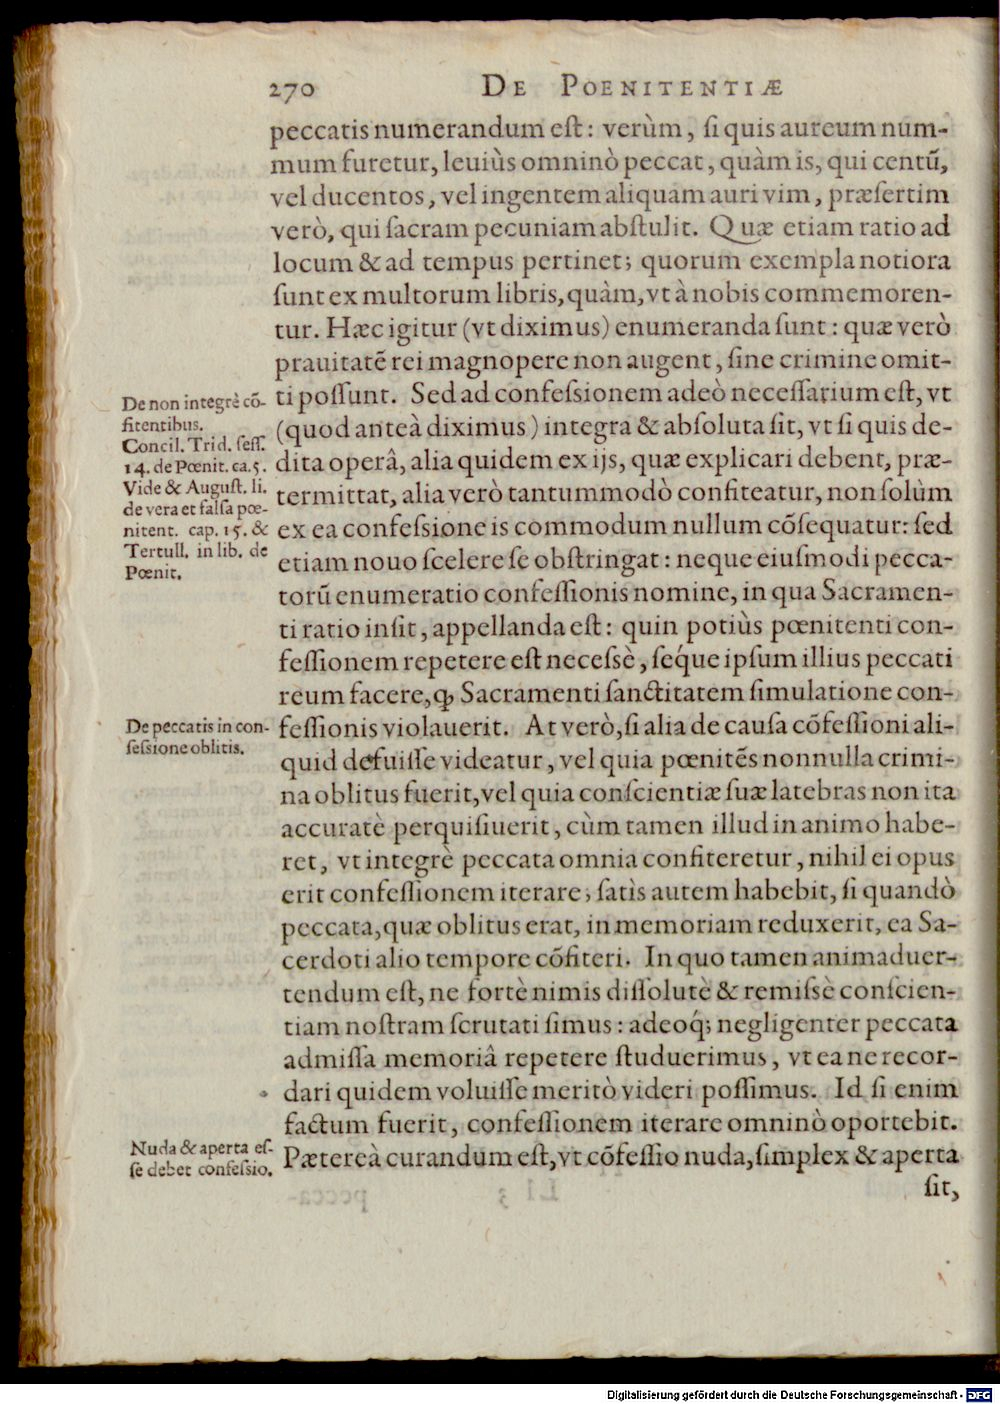 270 DE POENITENTIÆ
peccatis numerandum eſt: verùm, ſi quis aureum num-
mum furetur, leuiùs omninò peccat, quàm is, qui centũ,
vel ducentos, vel ingentem aliquam auri vim, præſertim
verò, qui ſacram pecuniam abſtulit. Quæ etiam ratio ad
locum & ad tempus pertinet; quorum exempla notiora
ſunt ex multorum libris, quàm, vt à nobis commemoren-
tur. Hæc igitur (vt diximus) enumeranda ſunt: quæ verò
prauitatẽ rei magnopere non augent, ſine crimine omit-
ti poſſunt. Sed ad confeſsionem adeò neceſſarium eſt, vt
(quod anteà diximus) integra & abſoluta ſit, vt ſi quis de-
dita operâ, alia quidem ex ijs, quæ explicari debent, præ-
termittat, alia verò tantummodò confiteatur, non ſolùm
ex ea confeſsione is commodum nullum cõſequatur: ſed
etiam nouo ſcelere ſe obſtringat: neque eiuſmodi pecca-
torũ enumeratio confeſſionis nomine, in qua Sacramen-
ti ratio inſit, appellanda eſt: quin potiùs pœnitenti con-
feſſionem repetere eſt neceſsè, ſeq́ue ipſum illius peccati
reum facere, ꝙ Sacramenti ſanctitatem ſimulatione con-
feſſionis violauerit. At verò, ſi alia de cauſa cõfeſſioni ali-
quid defuiſſe videatur, vel quia pœnitẽs nonnulla crimi-
na oblitus fuerit, vel quia conſcientiæ ſuæ latebras non ita
accuratè perquiſiuerit, cùm tamen illud in animo habe-
ret, vt integrè peccata omnia confiteretur, nihil ei opus
erit confeſſionem iterare; ſatìs autem habebit, ſi quandò
peccata, quæ oblitus erat, in memoriam reduxerit, ea Sa-
cerdoti alio tempore cõfiteri. In quo tamen animaduer-
tendum eſt, ne fortè nimis diſſolutè & remiſsè conſcien-
tiam noſtram ſcrutati ſimus: adeoq́; negligenter peccata
admiſſa memoriâ repetere ſtuduerimus, vt ea ne recor-
dari quidem voluiſſe meritò videri poſſimus. Id ſi enim
factum fuerit, confeſſionem iterare omninò oportebit.
Pætereà curandum eſt, vt cõfeſſio nuda, ſimplex & aperta
ſit,
De non integrè cõ-
fitentibus.
Concil. Trid. ſeſſ.
14. de Pœnit. ca. 5.
Vide & Auguſt. li.
de vera et falſa pœ-
nitent. cap. 15. &
Tertull. in lib. de
Pœnit.
De peccatis in con-
feſsione oblitis.
Nuda & aperta eſ-
ſe debet confeſsio.
Digitalisierung gefördert durch die Deutsche Forschungsgemeinschaft - DFG